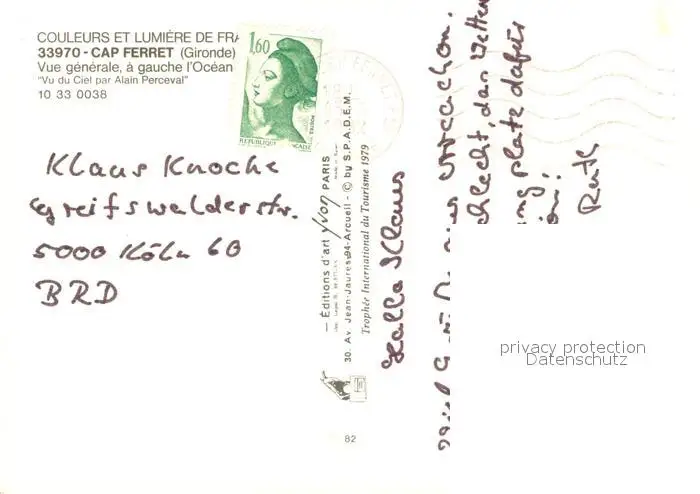 COULEURS ET LUMIÈRE DE FRA
33970 - CAP FERRET (Gironde)
Vue générale, à gauche l'Océan
"Vu du Ciel par Alain Perceval"
10 33 0038
1,60
REPUBLIQUE
Klaus Knoche
Greifswalderstr.
5000 Köln 60
BRD
— Éditions d'art yvon PARIS
30. Av. Jean-Jaurès 94-Arcueil - © by S.P.A.D.E.M.
Trophée International du Tourisme 1979
82
Hallo Klaus
Arcachon.
schlecht, das Wetter
platz dafür
Ruth
privacy protection
Datenschutz